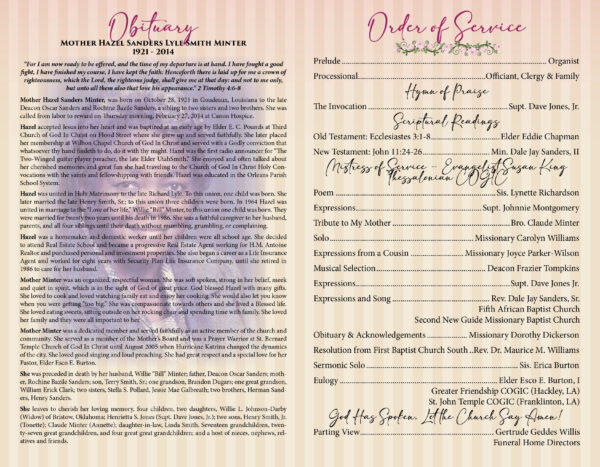 Obituary
Mother Hazel Sanders Lyle Smith Minter
1921 - 2014
"For I am now ready to be offered, and the time of my departure is at hand. I have fought a good
fight, I have finished my course, I have kept the faith: Henceforth there is laid up for me a crown of
righteousness, which the Lord, the righteous judge, shall give me at that day: and not to me only,
but unto all them also that love his appearance." 2 Timothy 4:6-8
Mother Hazel Sanders Minter, was born on October 28, 1921 in Goudeau, Louisiana to the late
Deacon Oscar Sanders and Rochine Bazile Sanders, a sibling to two sisters and two brothers. She was
called from labor to reward on Thursday morning, February 27, 2014 at Canon Hospice.
Hazel accepted Jesus into her heart and was baptized at an early age by Elder E. C. Pounds at Third
Church of God In Christ on Flood Street where she grew up and served faithfully. She later placed
her membership at Wilbon Chapel Church of God In Christ and served with a Godly conviction that
whatsoever thy hand findeth to do, do it with thy might. Hazel was the first radio announcer for "The
Two-Winged guitar player preacher, the late Elder UtahSmith." She enjoyed and often talked about
her cherished memories and great fun she had traveling to the Church of God In Christ Holy Con-
vocations with the saints and fellowshipping with friends. Hazel was educated in the Orleans Parish
School System.
Hazel was united in Holy Matrimony to the late Richard Lyle. To this union, one child was born. She
later married the late Henry Smith, Sr.; to this union three children were born. In 1964 Hazel was
united in marriage to the "Love of her life" Willie "Bill" Minter, to this union one child was born. They
were married for twenty two years until his death in 1986. She was a faithful caregiver to her husband,
parents, and all four siblings until their death without mumbling, grumbling, or complaining.
Hazel was a homemaker and domestic worker until her children were all school age. She decided
to attend Real Estate School and became a progressive Real Estate Agent working for H.M. Antoine
Realtor and purchased personal and investment properties. She also began a career as a Life Insurance
Agent and worked for eight years with Security Plan Life Insurance Company, until she retired in
1986 to care for her husband.
Mother Minter was an organized, respectful woman. She was soft spoken, strong in her belief, meek
and quiet in spirit, which is in the sight of God of great price. God blessed Hazel with many gifts.
She loved to cook and loved watching family eat and enjoy her cooking. She would also let you know
when you were getting "too big." She was compassionate towards others and she lived a Blessed life.
She loved eating sweets, sitting outside on her rocking chair and spending time with family. She loved
her family and they were all important to her.
Mother Minter was a dedicated member and served faithfully as an active member of the church and
community. She served as a member of the Mother's Board and was a Prayer Warrior at St. Bernard
Temple Church of God In Christ until August 2005 when Hurricane Katrina changed the dynamics
of the city. She loved good singing and loud preaching. She had great respect and a special love for her
Pastor, Elder Esco E. Burton.
She was preceded in death by her husband, Willie "Bill" Minter; father, Deacon Oscar Sanders; moth-
er, Rochine Bazile Sanders; son, Terry Smith, Sr.; one grandson, Brandon Dugars; one great grandson,
William Erick Clark; two sisters, Stella S. Pollard, Jessie Mae Galbreath; two brothers, Herman Sand-
ers, Henry Sanders.
She leaves to cherish her loving memory, four children, two daughters, Willie L. Johnson-Darby
(Widow) of Bristow, Oklahoma; Henrietta S. Jones (Supt. Dave Jones, Jr.); two sons, Henry Smith, Jr.
(Tonette); Claude Minter (Annette); daughter-in-law, Linda Smith. Seventeen grandchildren, twen-
ty-seven great grandchildren, and four great great grandchildren; and a host of nieces, nephews, rel-
atives and friends.
Order of Service
Prelude ... Organist
Processional ... Officiant, Clergy & Family
Hymn of Praise
The Invocation ... Supt. Dave Jones, Jr.
Scriptural Readings
Old Testament: Ecclesiastes 3:1-8 ... Elder Eddie Chapman
New Testament: John 11:24-26 ... Min. Dale Jay Sanders, II
Mistress of Service - Evangelist Susan King
Thessalonian COGIC
Poem ... Sis. Lynette Richardson
Expressions ... Supt. Johnnie Montgomery
Tribute to My Mother ... Bro. Claude Minter
Solo ... Missionary Carolyn Williams
Expressions from a Cousin ... Missionary Joyce Parker-Wilson
Musical Selection ... Deacon Frazier Tompkins
Expressions ... Supt. Dave Jones, Jr.
Expressions and Song ... Rev. Dale Jay Sanders, Sr.
Fifth African Baptist Church
Second New Guide Missionary Baptist Church
Obituary & Acknowledgements ... Missionary Dorothy Dickerson
Resolution from First Baptist Church South ..Rev. Dr. Maurice M. Williams
Sermonic Solo ... Sis. Erica Burton
Eulogy ... Elder Esco E. Burton, I
Greater Friendship COGIC (Hackley, LA)
St. John Temple COGIC (Franklinton, LA)
God Has Spoken, Let the Church Say Amen!
Parting View ... Gertrude Geddes Willis
Funeral Home Directors